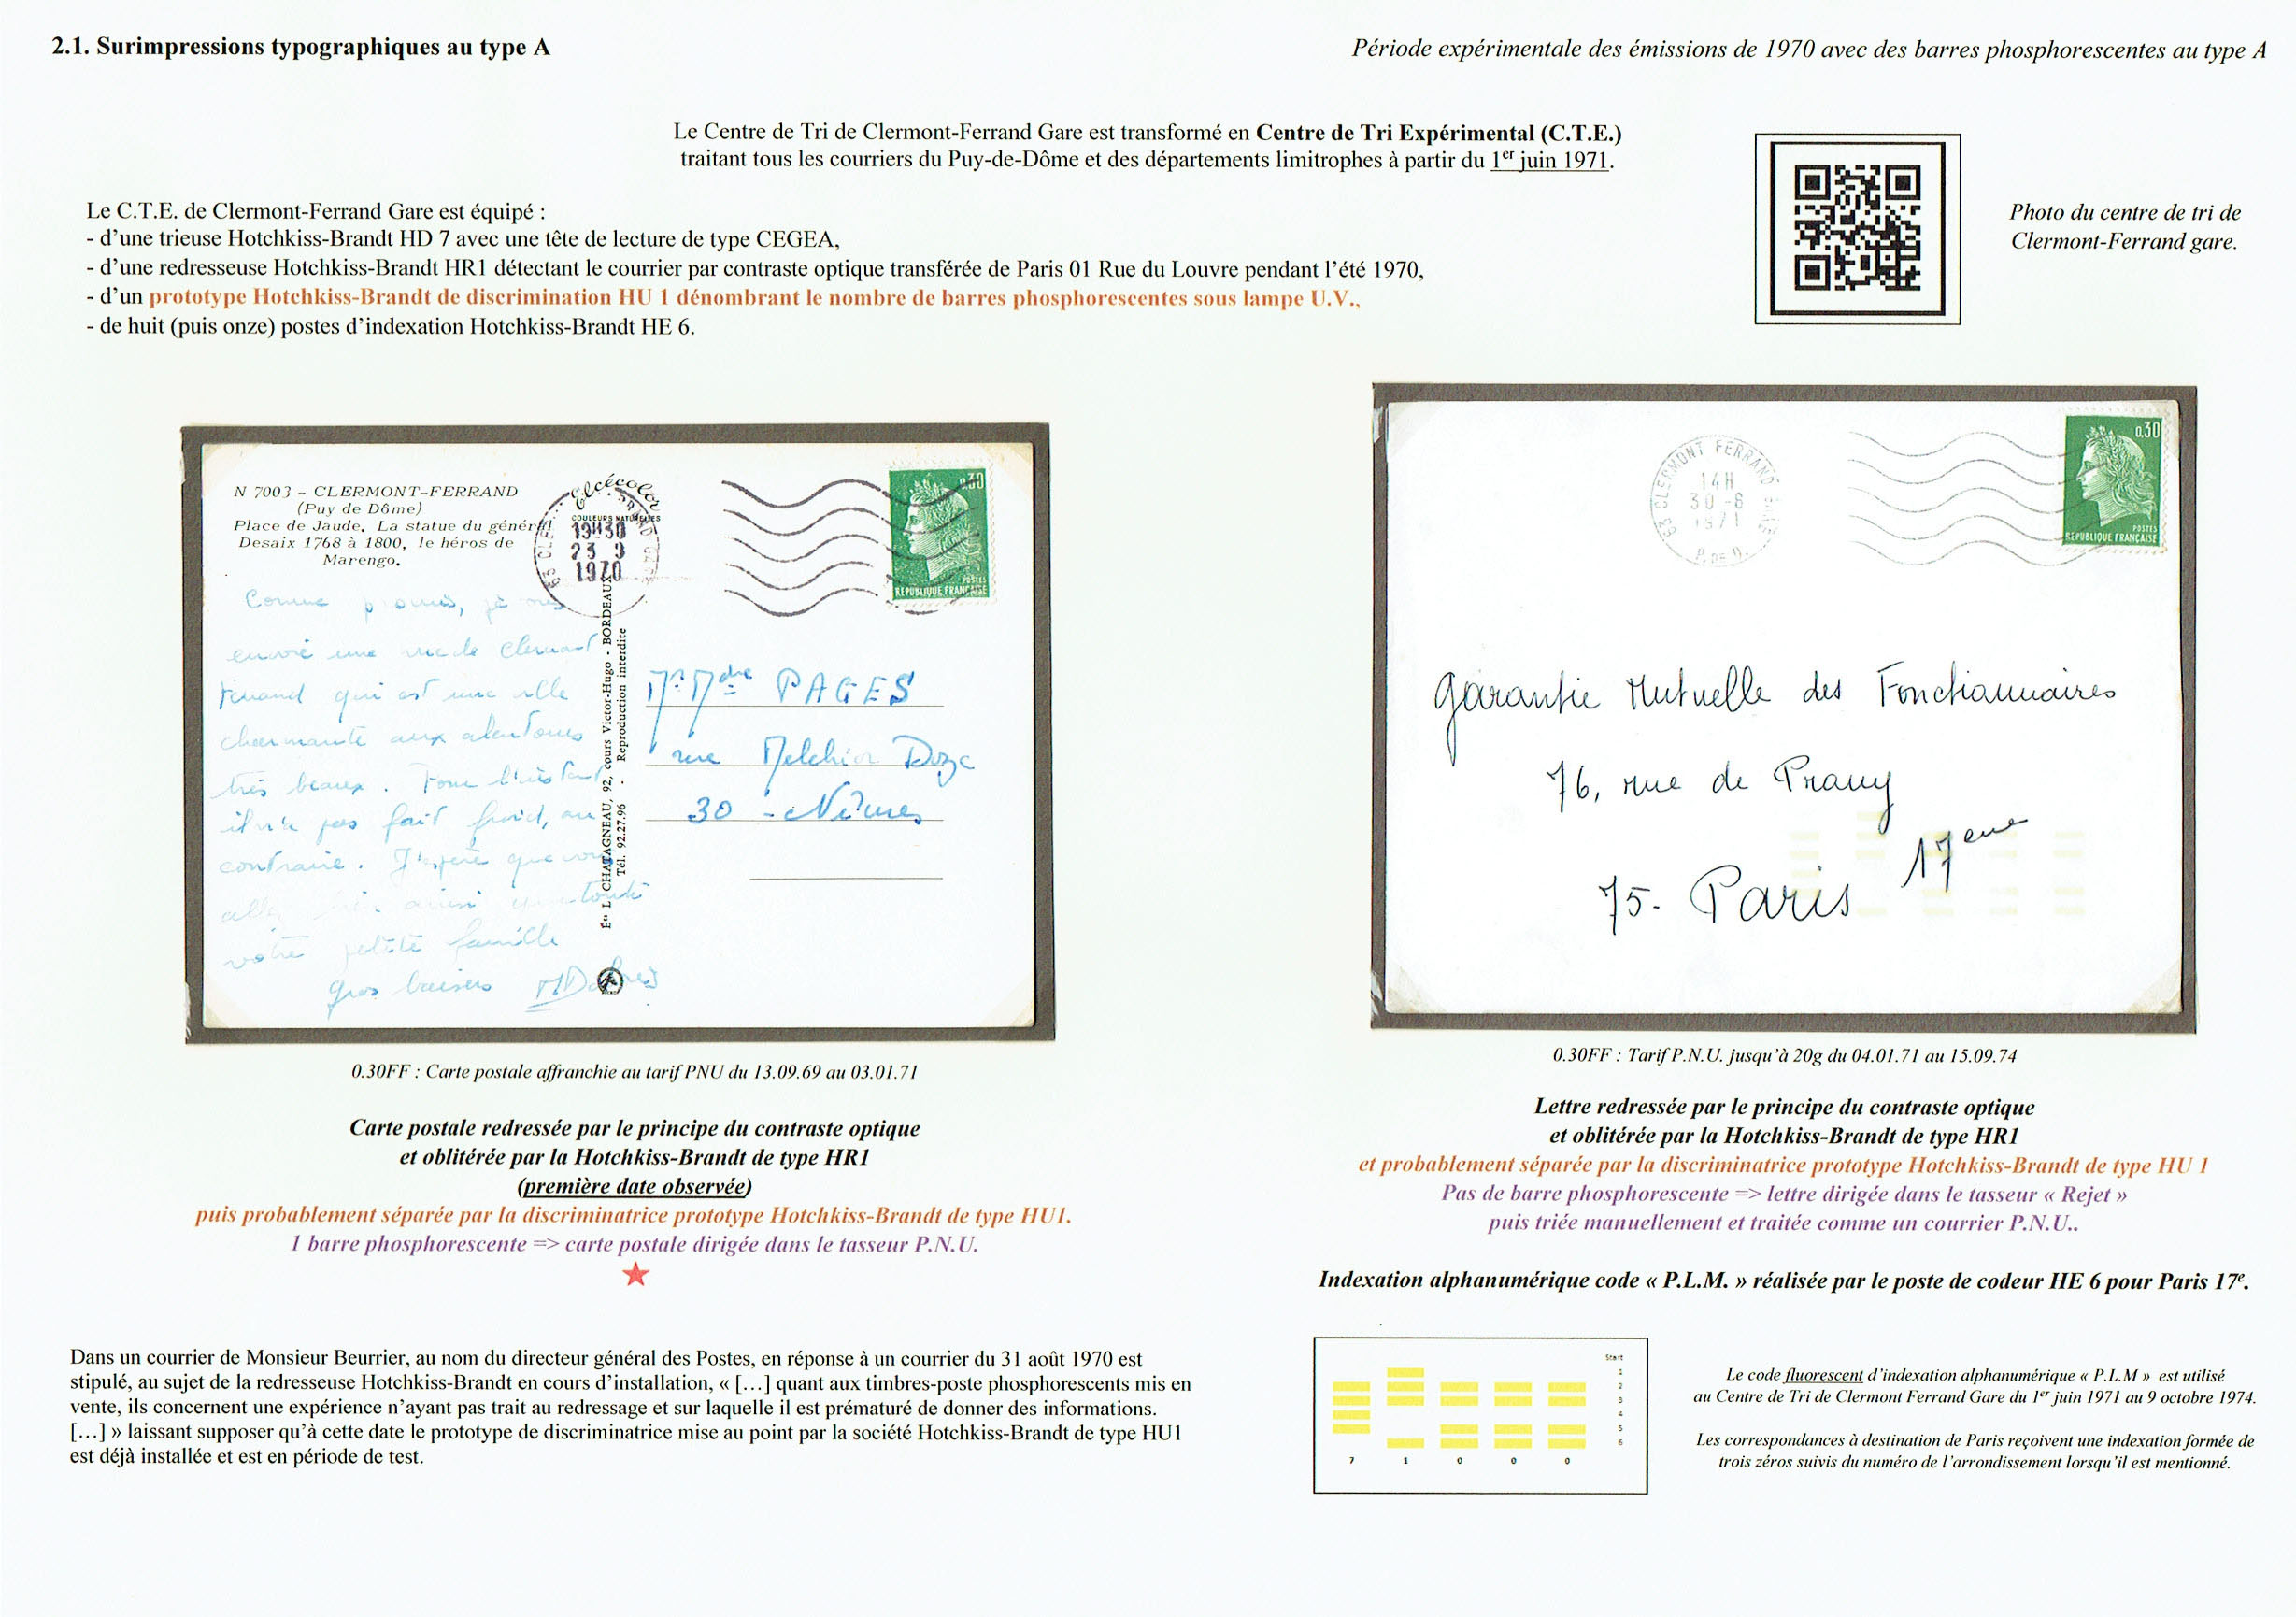 2.1. Surimpressions typographiques au type A
Période expérimentale des émissions de 1970 avec des barres phosphorescentes au type A
Le Centre de Tri de Clermont-Ferrand Gare est transformé en Centre de Tri Expérimental (C.T.E.)
traitant tous les courriers du Puy-de-Dôme et des départements limitrophes à partir du 1er juin 1971.
Le C.T.E. de Clermont-Ferrand Gare est équipé :
- d'une trieuse Hotchkiss-Brandt HD 7 avec une tête de lecture de type CEGEA,
- d'une redresseuse Hotchkiss-Brandt HR1 détectant le courrier par contraste optique transférée de Paris 01 Rue du Louvre pendant l'été 1970,
- d'un prototype Hotchkiss-Brandt de discrimination HU 1 dénombrant le nombre de barres phosphorescentes sous lampe U.V.,
- de huit (puis onze) postes d'indexation Hotchkiss-Brandt HE 6.
Photo du centre de tri de
Clermont-Ferrand gare.
N 7003 - CLERMONT-FERRAND
(Puy de Dôme)
Place de Jaude. La statue du général
Desaix 1768 à 1800, le héros de
Marengo.
Elcécolor
COULEURS NATURELLES
19H30
23 - 9
1970
0.30
POSTES
REPUBLIQUE FRANÇAISE
Comme promis, je vous
envoie une vue de Clermont
Ferrand qui est une ville
charmante aux alentours
très beaux. Pour l'instant
il n'a pas fait froid, au
contraire. J'espère que vous
allez bien ainsi que toute
votre petite famille
gros baisers
Edts L. CHATAGNEAU, 92, cours Victor-Hugo - BORDEAUX
Tél. 92.27.96 - Reproduction interdite
Mr Mme PAGES
rue Melchior Doze
30 - Nîmes
63 CLERMONT FERRAND GARE
14H
30 -6
1971
P. DE D.
0.30
POSTES
REPUBLIQUE FRANÇAISE
Garantie Mutuelle des Fonctionnaires
76, rue de Prony
75 - Paris 17eme
0.30FF : Carte postale affranchie au tarif PNU du 13.09.69 au 03.01.71
Carte postale redressée par le principe du contraste optique
et oblitérée par la Hotchkiss-Brandt de type HR1
(première date observée)
puis probablement séparée par la discriminatrice prototype Hotchkiss-Brandt de type HU1.
1 barre phosphorescente => carte postale dirigée dans le tasseur P.N.U.
0.30FF : Tarif P.N.U. jusqu'à 20g du 04.01.71 au 15.09.74
Lettre redressée par le principe du contraste optique
et oblitérée par la Hotchkiss-Brandt de type HR1
et probablement séparée par la discriminatrice prototype Hotchkiss-Brandt de type HU 1
Pas de barre phosphorescente => lettre dirigée dans le tasseur « Rejet »
puis triée manuellement et traitée comme un courrier P.N.U..
Indexation alphanumérique code « P.L.M. » réalisée par le poste de codeur HE 6 pour Paris 17e.
Dans un courrier de Monsieur Beurrier, au nom du directeur général des Postes, en réponse à un courrier du 31 août 1970 est
stipulé, au sujet de la redresseuse Hotchkiss-Brandt en cours d'installation, « […] quant aux timbres-poste phosphorescents mis en
vente, ils concernent une expérience n'ayant pas trait au redressage et sur laquelle il est prématuré de donner des informations.
[…] » laissant supposer qu'à cette date le prototype de discriminatrice mise au point par la société Hotchkiss-Brandt de type HU1
est déjà installée et est en période de test.
Start
1
2
3
4
5
6
7 1 0 0 0
Le code fluorescent d'indexation alphanumérique « P.L.M » est utilisé
au Centre de Tri de Clermont Ferrand Gare du 1er juin 1971 au 9 octobre 1974.
Les correspondances à destination de Paris reçoivent une indexation formée de
trois zéros suivis du numéro de l'arrondissement lorsqu'il est mentionné.